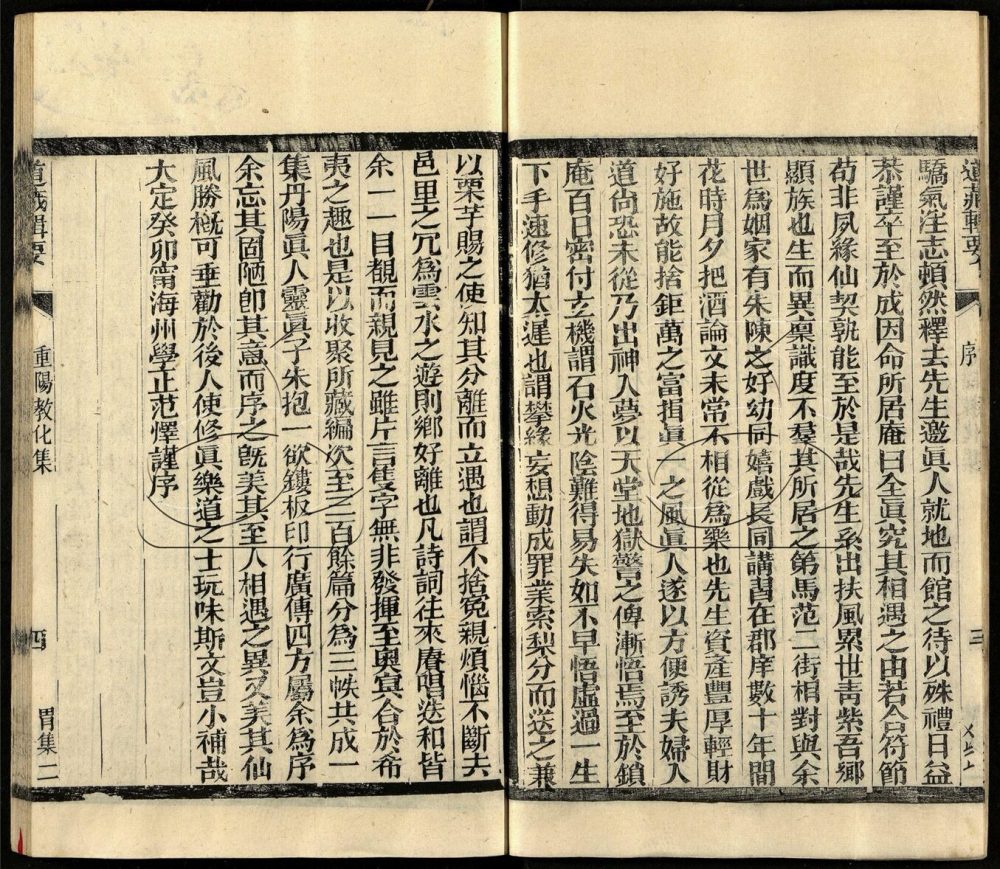 道藏輯要
序
三
驕氣注志頓然釋去先生邀眞人就地而館之待以殊禮日益
恭謹卒至於成因命所居庵曰全眞究其相遇之由若合符節
苟非夙緣仙契孰能至於是哉先生系出扶風累世青紫吾鄉
顯族也生而異稟識度不羣其所居之第馬范二街相對與余
世爲姻家有朱陳之好幼同嬉戲長同講習在郡庠數十年間
花時月夕把酒論文未常不相從爲樂也先生資產豐厚輕財
好施故能捨鉅萬之富揖眞一之風眞人遂以方便誘夫婦入
道尚恐未從乃出神入夢以天堂地獄警之俾漸悟焉至於鎖
庵百日密付玄機謂石火光陰難得易失如不早悟虛過一生
下手速修猶太遲也謂攀緣妄想動成罪業索梨分而送之兼
以栗芋賜之使知其分離而立遇也謂不捨冤親煩惱不斷去
邑里之冗爲雲水之遊則鄉好離也凡詩詞往來賡唱迭和皆
余一一目覩而親見之雖片言隻字無非發揮至奧冥合於希
夷之趣也是以收聚所藏編次至三百餘篇分爲三帙共成一
集丹陽眞人靈眞子朱抱一欲鏤板印行廣傳四方屬余爲序
余忘其固陋卽其意而序之旣美其至人相遇之異又美其仙
風勝槪可垂勸於後人使修眞樂道之士玩味斯文豈小補哉
大定癸卯甯海州學正范懌謹序
道藏輯要
重陽教化集
四
胃集二